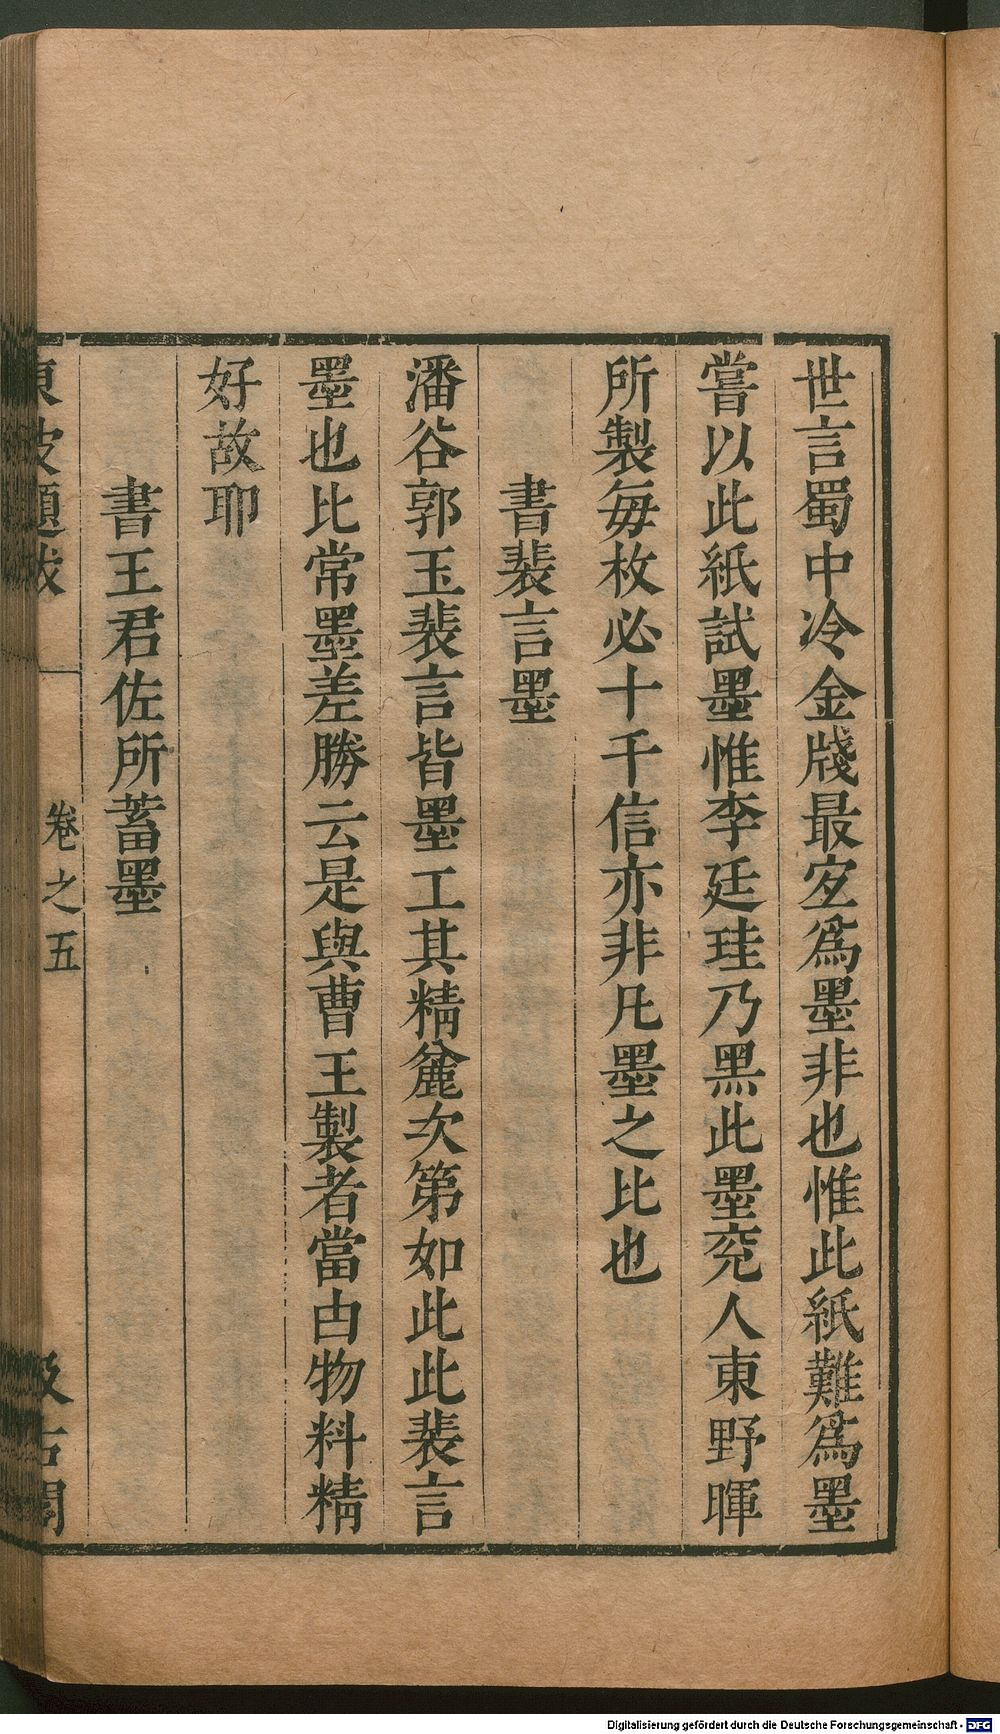 世言蜀中冷金牋最宐爲墨非也惟此紙難爲墨
嘗以此紙試墨惟李廷珪乃黑此墨兖人東野暉
所製每枚必十千信亦非凡墨之比也
書裴言墨
潘谷郭玉裴言皆墨工其精麄次第如此此裴言
墨也比常墨差勝云是與曹王製者當由物料精
好故耶
書王君佐所蓄墨
東坡題跋 卷之五 汲古閣
Digitalisierung gefördert durch die Deutsche Forschungsgemeinschaft - DFG